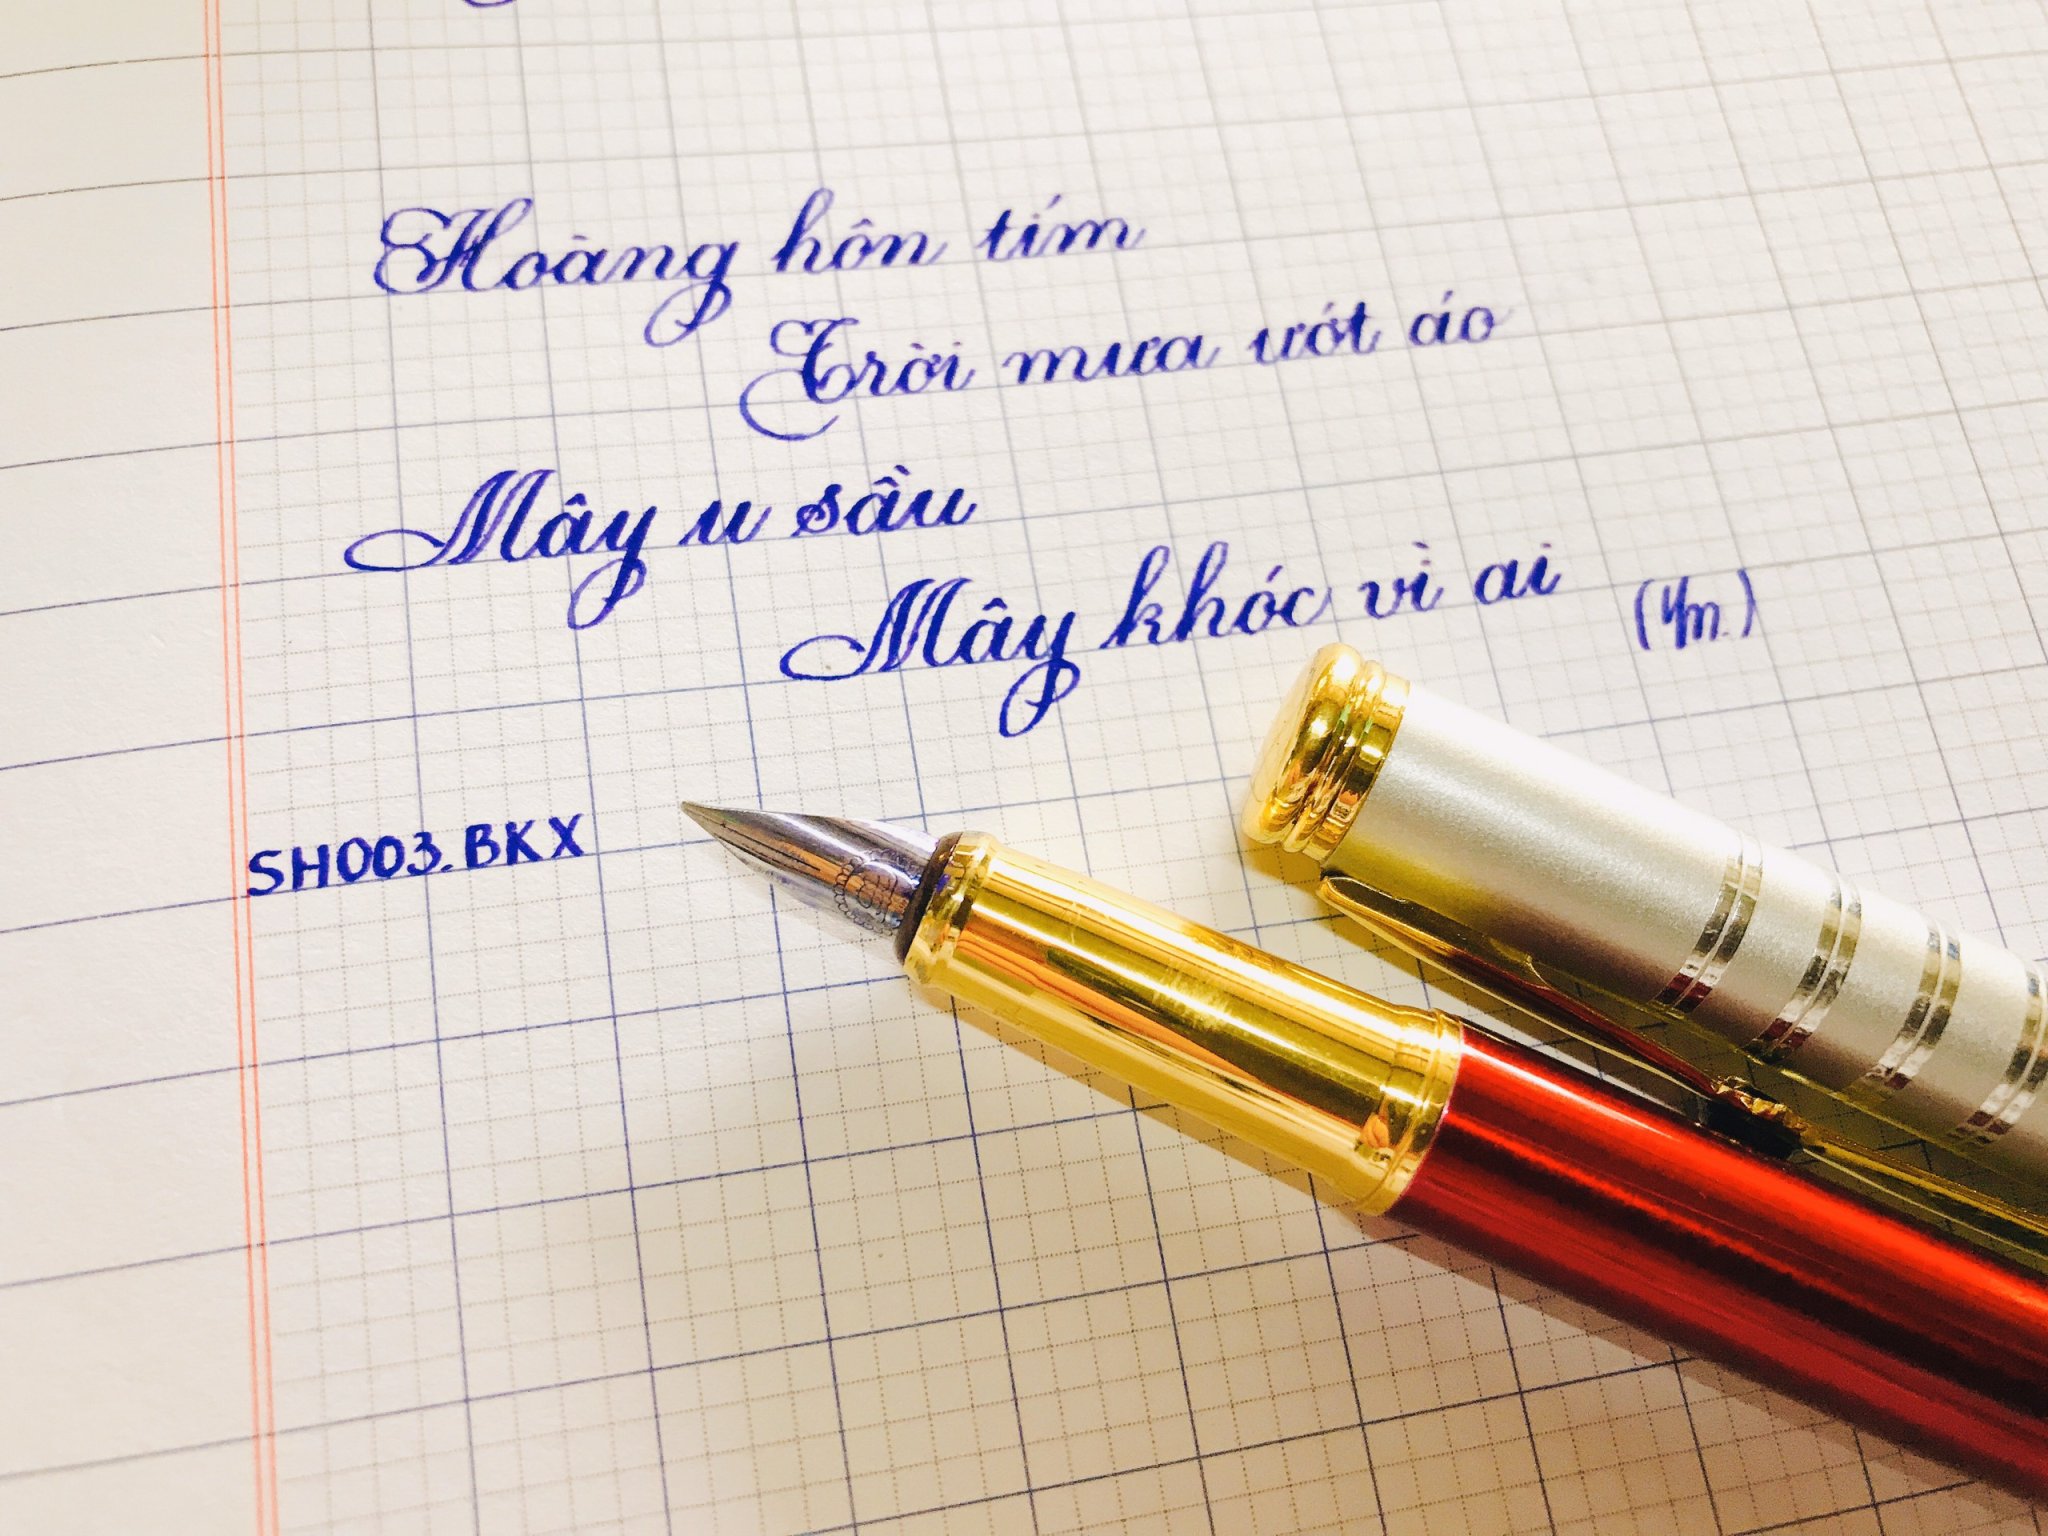 Hoàng hôn tím
Trời mưa ướt áo
Mây u sầu
Mây khóc vì ai
SH003.BKX